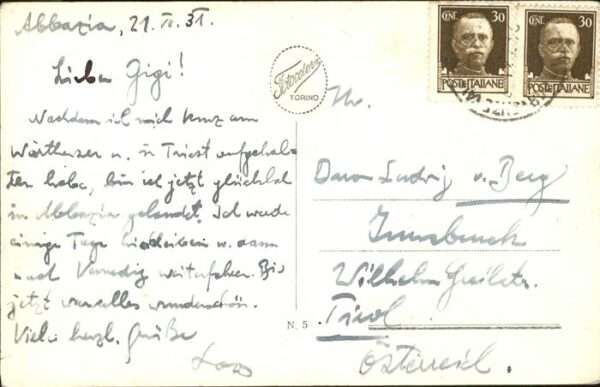 Abbazia, 21. IV. 31.
Lieber Gigi!
Nachdem ich mich kurz am
Wörthersee u. in Triest aufgehal-
ten habe, bin ich jetzt glücklich
in Abbazia gelandet. Ich werde
einige Tage hierbleiben u. dann
nach Venedig weiterfahren. Bis
jetzt war alles wunderschön.
Viele herzl. Grüße
Fotocelere
TORINO
N. 5
CENT. 30
POSTE ITALIANE
CENT. 30
POSTE ITALIANE
Baron Ludwig v. Berg
Innsbruck
Wilhelm Greilstr.
Tirol
Österreich.